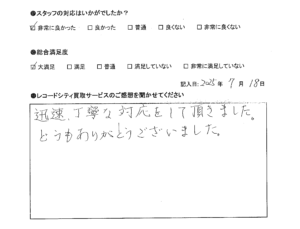 ●スタッフの対応はいかがでしたか？
☑ 非常に良かった □ 良かった □ 普通 □ 良くない □ 非常に良くない
●総合満足度
☑ 大満足 □ 満足 □ 普通 □ 満足していない □ 非常に満足していない
記入日: 2025 年 7 月 18 日
●レコードシティ買取サービスのご感想を聞かせてください
迅速、丁寧な対応をして頂きました。
どうもありがとうございました。